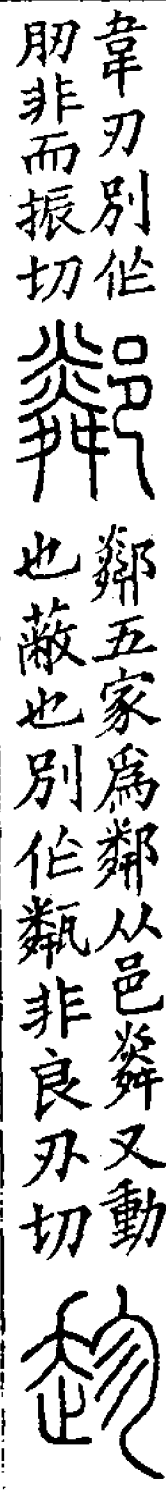 韋刃別作
肕非而振切
鄰
鄰五家爲鄰从邑㷠又動
也蔽也別作甐非良刃切
趁